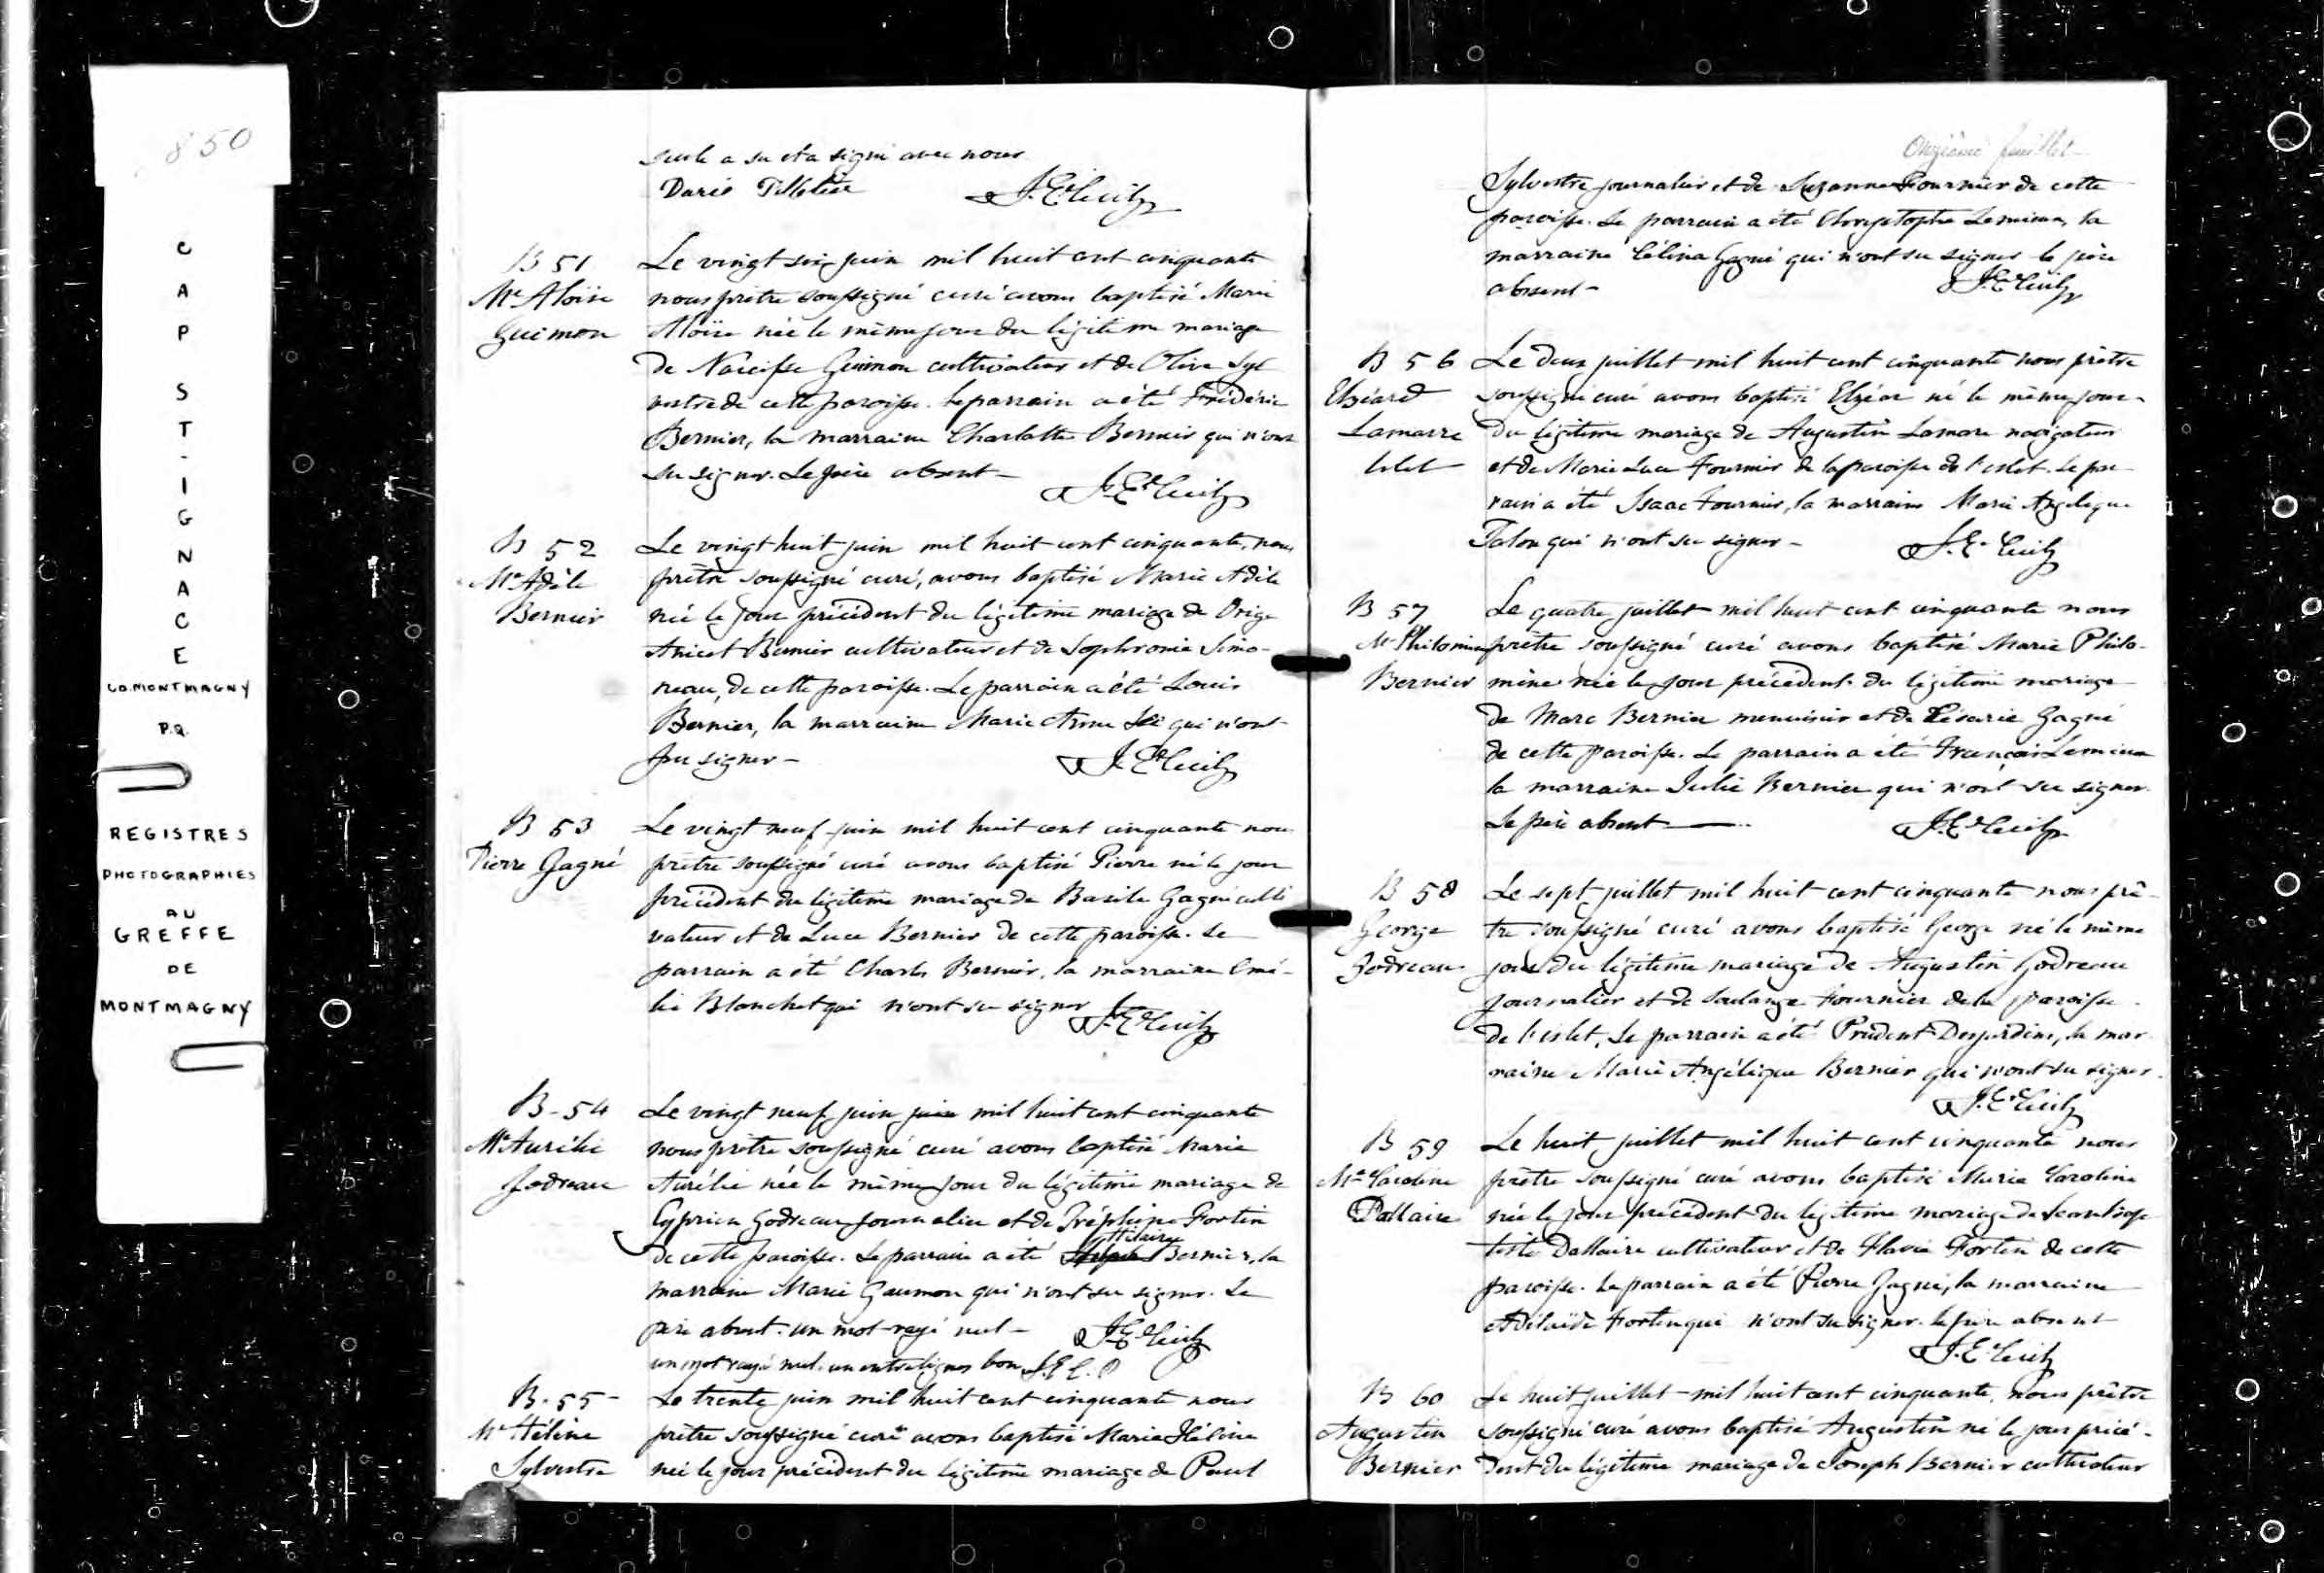 850
C
A
P
S
T
-
I
G
N
A
C
E
CO. MONTMAGNY
P.Q.
REGISTRES
PHOTOGRAPHIES
AU
GREFFE
DE
MONTMAGNY
seule a su et a signé avec nous
J. Ed Cecil
B 51
Me Aloïse
Guimon
Le vingt six juin mil huit cent cinquante
nous prêtre soussigné curé avons baptisé Marie
Aloïse née le même jour du légitime mariage
de Narcisse Guimon cultivateur et de Olive Syl
vestre de cette paroisse. Le parrain a été Frédéric
Bernier, la marraine Charlotte Bernier qui n'ont
su signer. Le père absent -
J. Ed Cecil
B 52
Me Adèle
Bernier
Le vingt huit juin mil huit cent cinquante, nous
prêtre soussigné curé, avons baptisé Marie Adèle
née le jour précédent du légitime mariage de Orige
Anicet Bernier cultivateur et de Sophronie Simo-
neau, de cette paroisse. Le parrain a été Louis
Bernier, la marraine Marie Anne qui n'ont
su signer -
J. Ed Cecil
B 53
Pierre Gagné
Le vingt neuf juin mil huit cent cinquante nous
prêtre soussigné curé avons baptisé Pierre né le jour
précédent du légitime mariage de Basile Gagné culti
vateur et de Luce Bernier de cette paroisse. Le
parrain a été Charles Bernier, la marraine Emé-
lie Blanchet qui n'ont su signer
J. Ed Cecil
B-54
Me Aurélie
Godreau
Le vingt neuf juin juin mil huit cent cinquante
nous prêtre soussigné curé avons baptisé Marie
Aurélie née le même jour du légitime mariage de
Cyprien Godreau journalier et de Tréphine Fortin
Hilaire
de cette paroisse. Le parrain a été Bernier, la
marraine Marie Gaumon qui n'ont su signer. Le
père absent. un mot rayé nul -
J. Ed Cecil
un mot rayé nul. un entrelignes bon J. E. C. P
B-55-
Me Hélène
Sylvestre
Le trente juin mil huit cent cinquante nous
prêtre soussigné curé avons baptisé Marie Hélène
née le jour précédent du légitime mariage de Paul
Onzième feuillet
Sylvestre journalier et de Suzanne Fournier de cette
paroisse. Le parrain a été Christophe Lemieux, la
marraine Célina Gagné qui n'ont su signer le père
absent -
J. Ed Cecil
B 56
Elzéard
Lamarre
Islet
Le deux juillet mil huit cent cinquante nous prêtre
soussigné curé avons baptisé Elzéar né le même jour
du légitime mariage de Augustin Lamare navigateur
et de Marie Luce Fournier de la paroisse de l'islet. Le par
rain a été Isaac Fournier, la marraine Marie Angélique
Talon qui n'ont su signer -
J. Ed Cecil
B 57
Me Philomène
Bernier
Le quatre juillet mil huit cent cinquante nous
prêtre soussigné curé avons baptisé Marie Philo-
mène née le jour précédent du légitime mariage
de Marc Bernier menuisier et de Césarie Gagné
de cette paroisse. Le parrain a été François Lemieux
la marraine Julie Bernier qui n'ont su signer.
Le père absent -
J. Ed Cecil
B 58
George
Godreau
Le sept juillet mil huit cent cinquante nous prê-
tre soussigné curé avons baptisé George né le même
jour du légitime mariage de Augustin Godreau
journalier et de Soulange Fournier de la paroisse
de l'islet, Le parrain a été Prudent Desjardins, la mar
raine Marie Angélique Bernier qui n'ont su signer.
J. Ed Cecil
B 59
Me Caroline
Dallaire
Le huit juillet mil huit cent cinquante nous
prêtre soussigné curé avons baptisé Marie Caroline
née le jour précédent du légitime mariage de Jean bap
tiste Dallaire cultivateur et de Flavie Fortin de cette
paroisse. Le parrain a été Pierre Gagné, la marraine
Adélaïde Fortin qui n'ont su signer. le père absent
J. Ed Cecil
B 60
Augustin
Bernier
Le huit juillet mil huit cent cinquante, nous prêtre
soussigné curé avons baptisé Augustin né le jour précé-
dent du légitime mariage de Joseph Bernier cultivateur